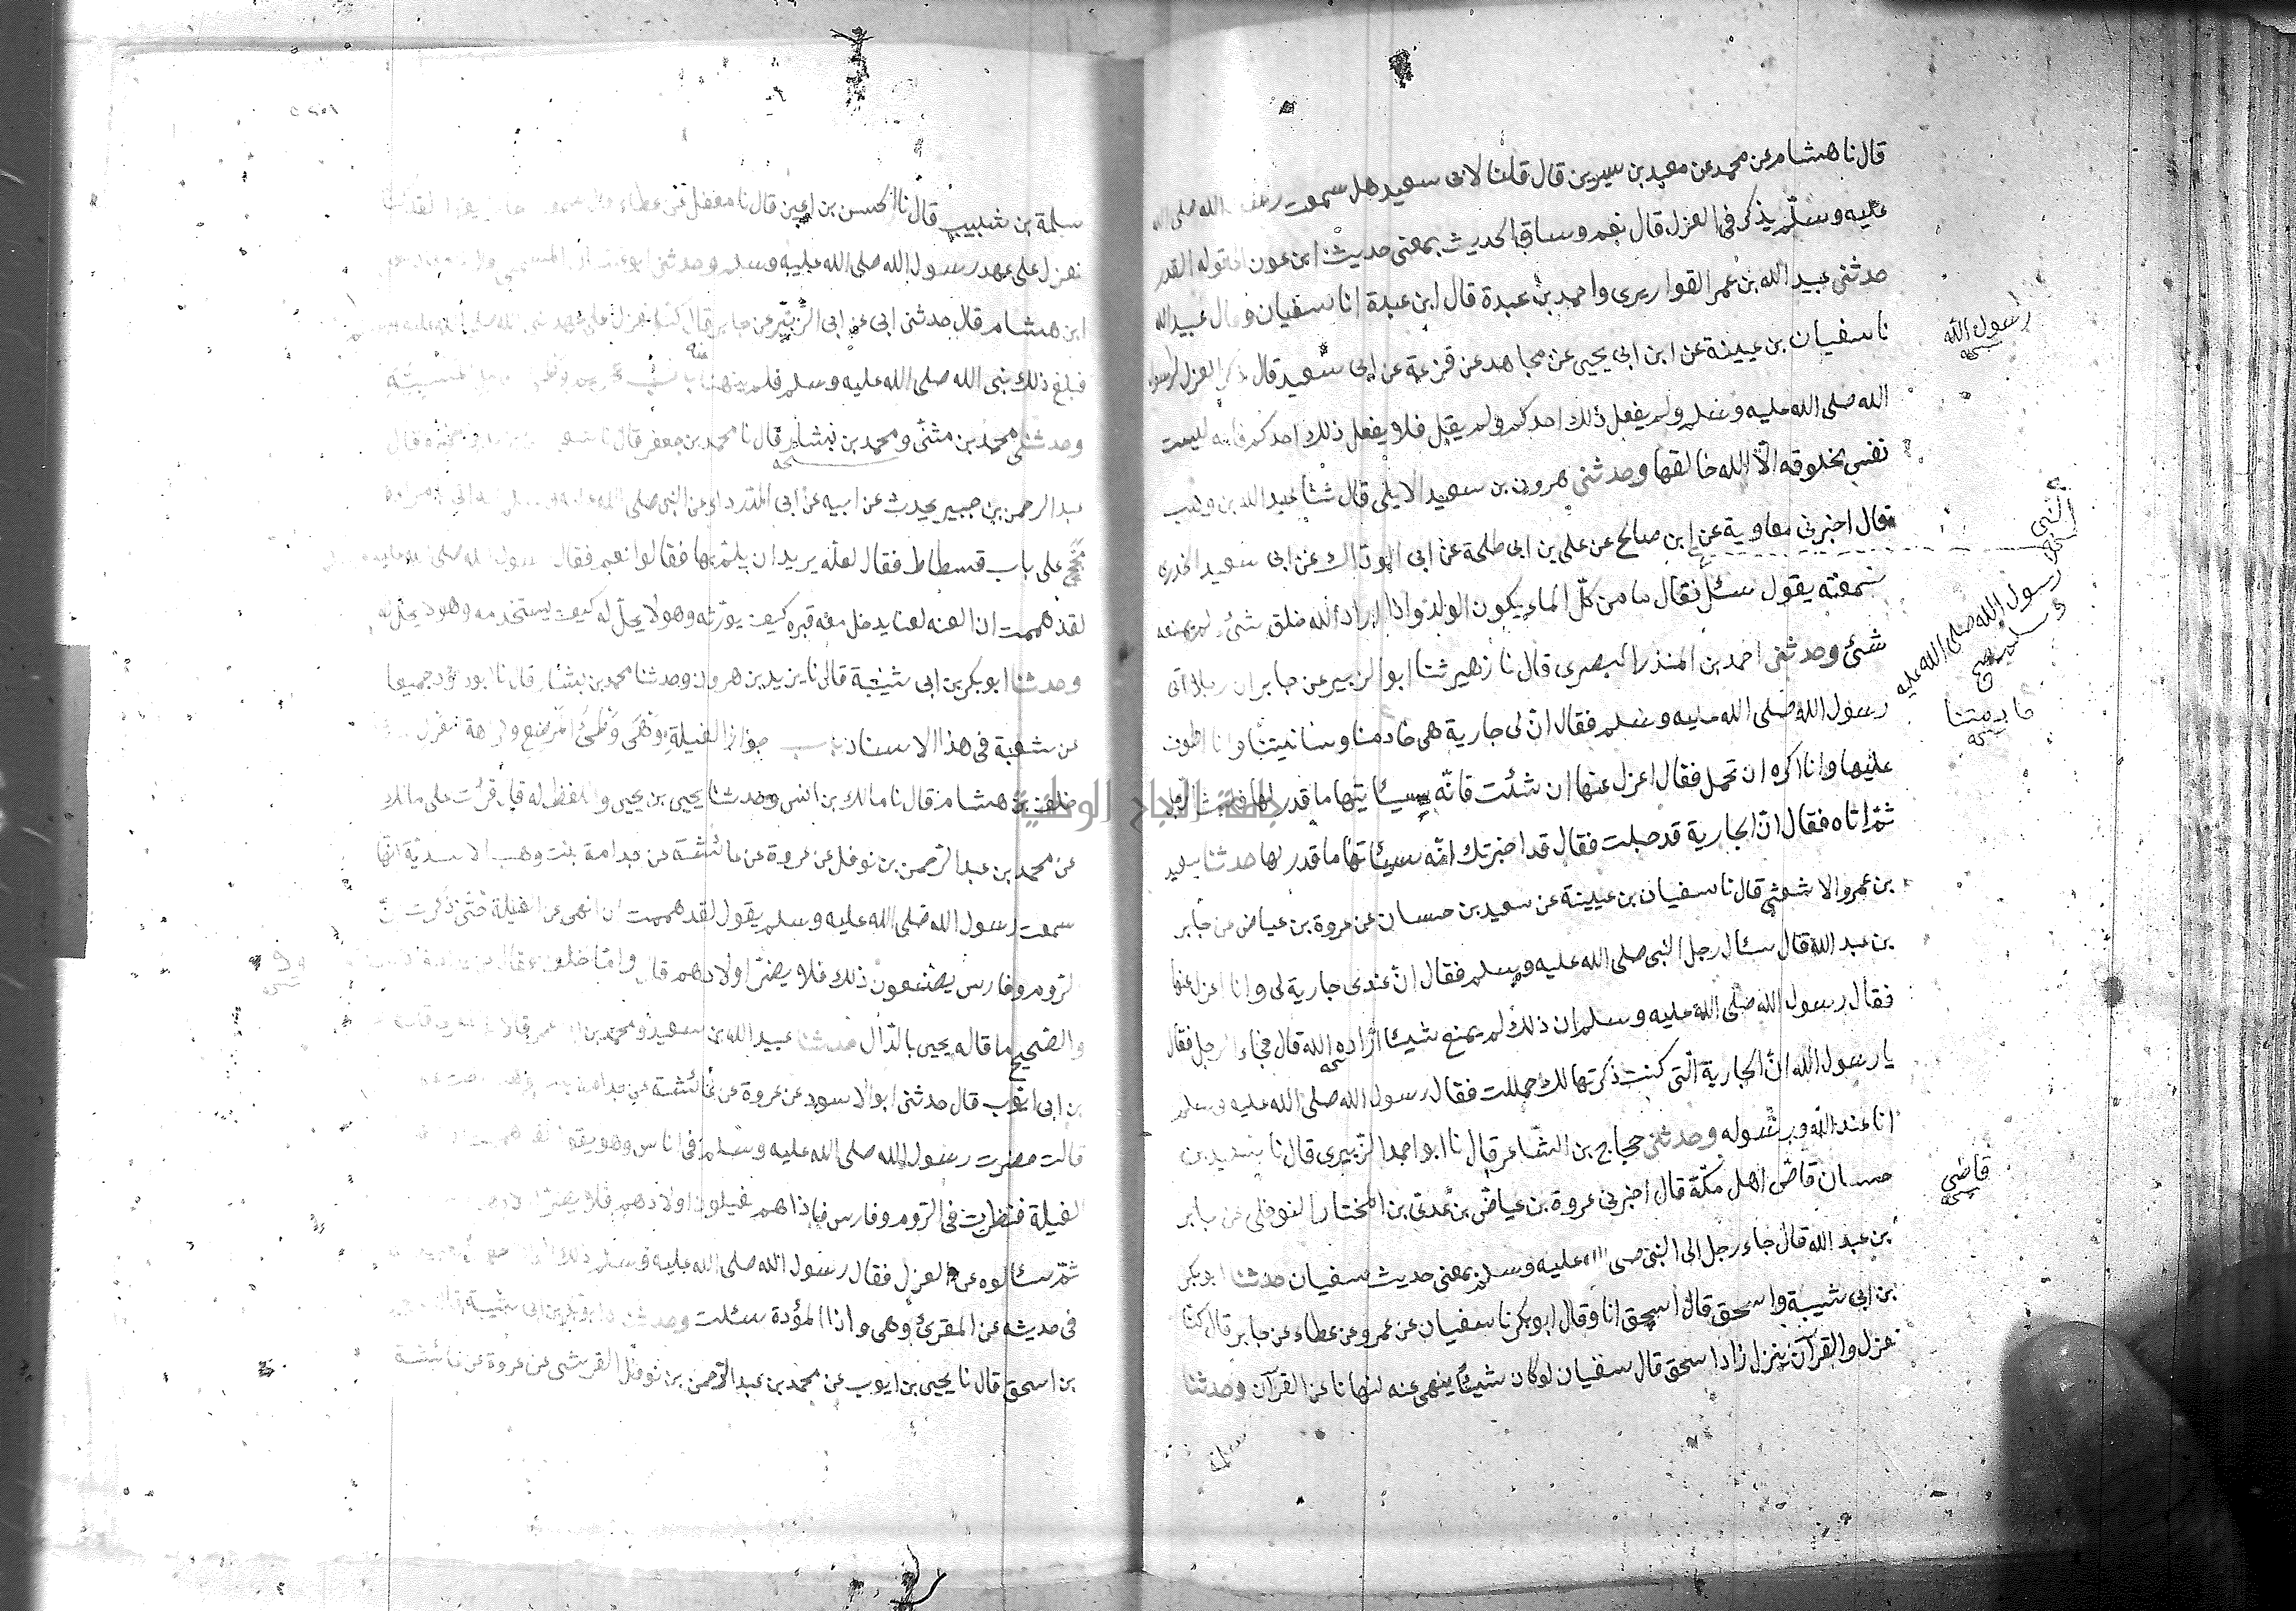 قال نا هشام عن محمد عن معبد بن سيرين قال قلنا لابى سعيد هل سمعت رسول الله صلى الله
عليه وسلم يذكر فى العزل قال نعم وساق الحديث بمعنى حديث ابن عون الى قوله القدر
حدثنى عبيد الله بن عمر القواريرى واحمد بن عبدة قال ابن عبدة انا سفيان وقال عبيد الله
نا سفيان بن عيينة عن ابن ابى يحيى عن مجاهد عن قزعة عن ابى سعيد قال ذكر العزل لرسول
الله صلى الله عليه وسلم ولم يفعل ذلك احدكم ولم يقل فلا يفعل ذلك احدكم فانه ليست
نفس مخلوقه الا الله خالقها وحدثنى هرون بن سعيد الايلى قال ثنا عبد الله بن وهب
قال اخبرنى معاوية عن ابن صالح عن على بن ابى طلحة عن ابى الوداك عن ابى سعيد الخدرى
سمعته يقول سئل فقال ما من كل الماء يكون الولد واذا اراد الله خلق شئ لم يمنعه
شئ وحدثنى احمد بن المنذر البصرى قال نا زهير ثنا ابو الزبير عن جابر ان رجلا اتى
رسول الله صلى الله عليه وسلم فقال ان لى جارية هى خادمنا وسانيتنا وانا اطوف
عليها وانا اكره ان تحمل فقال اعزل عنها ان شئت فانه سيئاتيها ما قدر لها فلبث الرجل
ثم اتاه فقال ان الجارية قد حبلت فقال قد اخبرتك انه سيئاتها ما قدر لها حدثنا سعيد
بن عمرو الاشعثى قال نا سفيان بن عيينة عن سعيد بن حسان عن عروة بن عياض عن جابر
بن عبد الله قال سئال رجل النبى صلى الله عليه وسلم فقال ان عندى جارية لى وانا اعزل عنها
فقال رسول الله صلى الله عليه وسلم ان ذلك لم يمنع شيئا اراده الله قال فجاء الرجل فقال
يا رسول الله ان الجارية التى كنت ذكرتها لك حملت فقال رسول الله صلى الله عليه وسلم
انا عبد الله ورسوله وحدثنى حجاج بن الشاعر قال نا ابو احمد الزبيرى قال نا سعيد بن
حسان قاص اهل مكة قال اخبرنى عروة بن عياض بن عدى بن الختار النوفلى عن جابر
بن عبد الله قال جاء رجل الى النبى صلى الله عليه وسلم بمعنى حديث سفيان حدثنا ابو بكر
بن ابى شيبة واسحق قال اسحق انا وقال ابو بكر نا سفيان عن عمرو عن عطاء عن جابر قال كنا
نعزل والقرآن ينزل زاد اسحق قال سفيان لو كان شيئا ينهى عنه لنهانا عن القرآن وحدثنا
سلمة
رسول الله
النبى
رسول الله صلى الله عليه
وسلم صح
خادمتنا
قاضى
سلمة بن شبيب قال نا الحسن بن اعين قال نا معقل عن عطاء قال سمعت جابر يقول لقد كنا
نعزل على عهد رسول الله صلى الله عليه وسلم وحدثنى ابو غسان المسمعى
ابن هشام قال حدثنى ابى عن ابى الزبير عن جابر قال كنا نعزل على عهد نبى الله صلى الله عليه وسلم
فبلغ ذلك نبى الله صلى الله عليه وسلم فلم ينهنا باب
وحدثنى محمد بن مثنى ومحمد بن بشار قال نا محمد بن جعفر قال نا شعبة
عبد الرحمن بن جبير يحدث عن ابيه عن ابى الدرداء عن النبى صلى الله عليه وسلم
مجح على باب فسطاط فقال لعله يريد ان يلم بها فقالوا نعم فقال رسول الله صلى الله عليه
لقد هممت ان العنه لعنا يدخل معه قبره كيف يورثه وهو لا يحل له كيف يستخدمه وهو لا يحل له
وحدثنا ابو بكر بن ابى شيبة قال نا يزيد بن هرون وحدثنا محمد بن بشار قال نا ابو داود جميعا
عن شعبة فى هذا الاسناد باب جواز الغيلة وهى وطئ المرضع
خلف بن هشام قال نا مالك بن انس وحدثنا يحيى بن يحيى واللفظ له قال قرئت على مالك
عن محمد بن عبد الرحمن بن نوفل عن عروة عن عائشة عن جدامة بنت وهب الاسدية انها
سمعت رسول الله صلى الله عليه وسلم يقول لقد هممت ان انهى عن الغيلة حتى ذكرت ان
الروم وفارس يصنعون ذلك فلا يضر اولادهم قال واما خلف فقال
والصحيح ما قاله يحيى بالدال حدثنا عبيد الله بن سعيد ومحمد بن ابى عمر قالا
بن ابى ايوب قال حدثنى ابو الاسود عن عروة عن عائشة عن جدامة بنت وهب
قالت حضرت رسول الله صلى الله عليه وسلم فى اناس وهو يقول لقد هممت
الغيلة فنظرت فى الروم وفارس فاذا هم يغيلون اولادهم فلا يضر اولادهم
ثم سئالوه عن العزل فقال رسول الله صلى الله عليه وسلم ذلك
فى حديثه عن المقرئ وهى واذا المؤدة سئلت وحدثنا ابو بكر بن ابى شيبة
بن اسحق قال نا يحيى بن ايوب عن محمد بن عبد الرحمن بن نوفل القرشى عن عروة عن عائشة
جامعة النجاح الوطنية